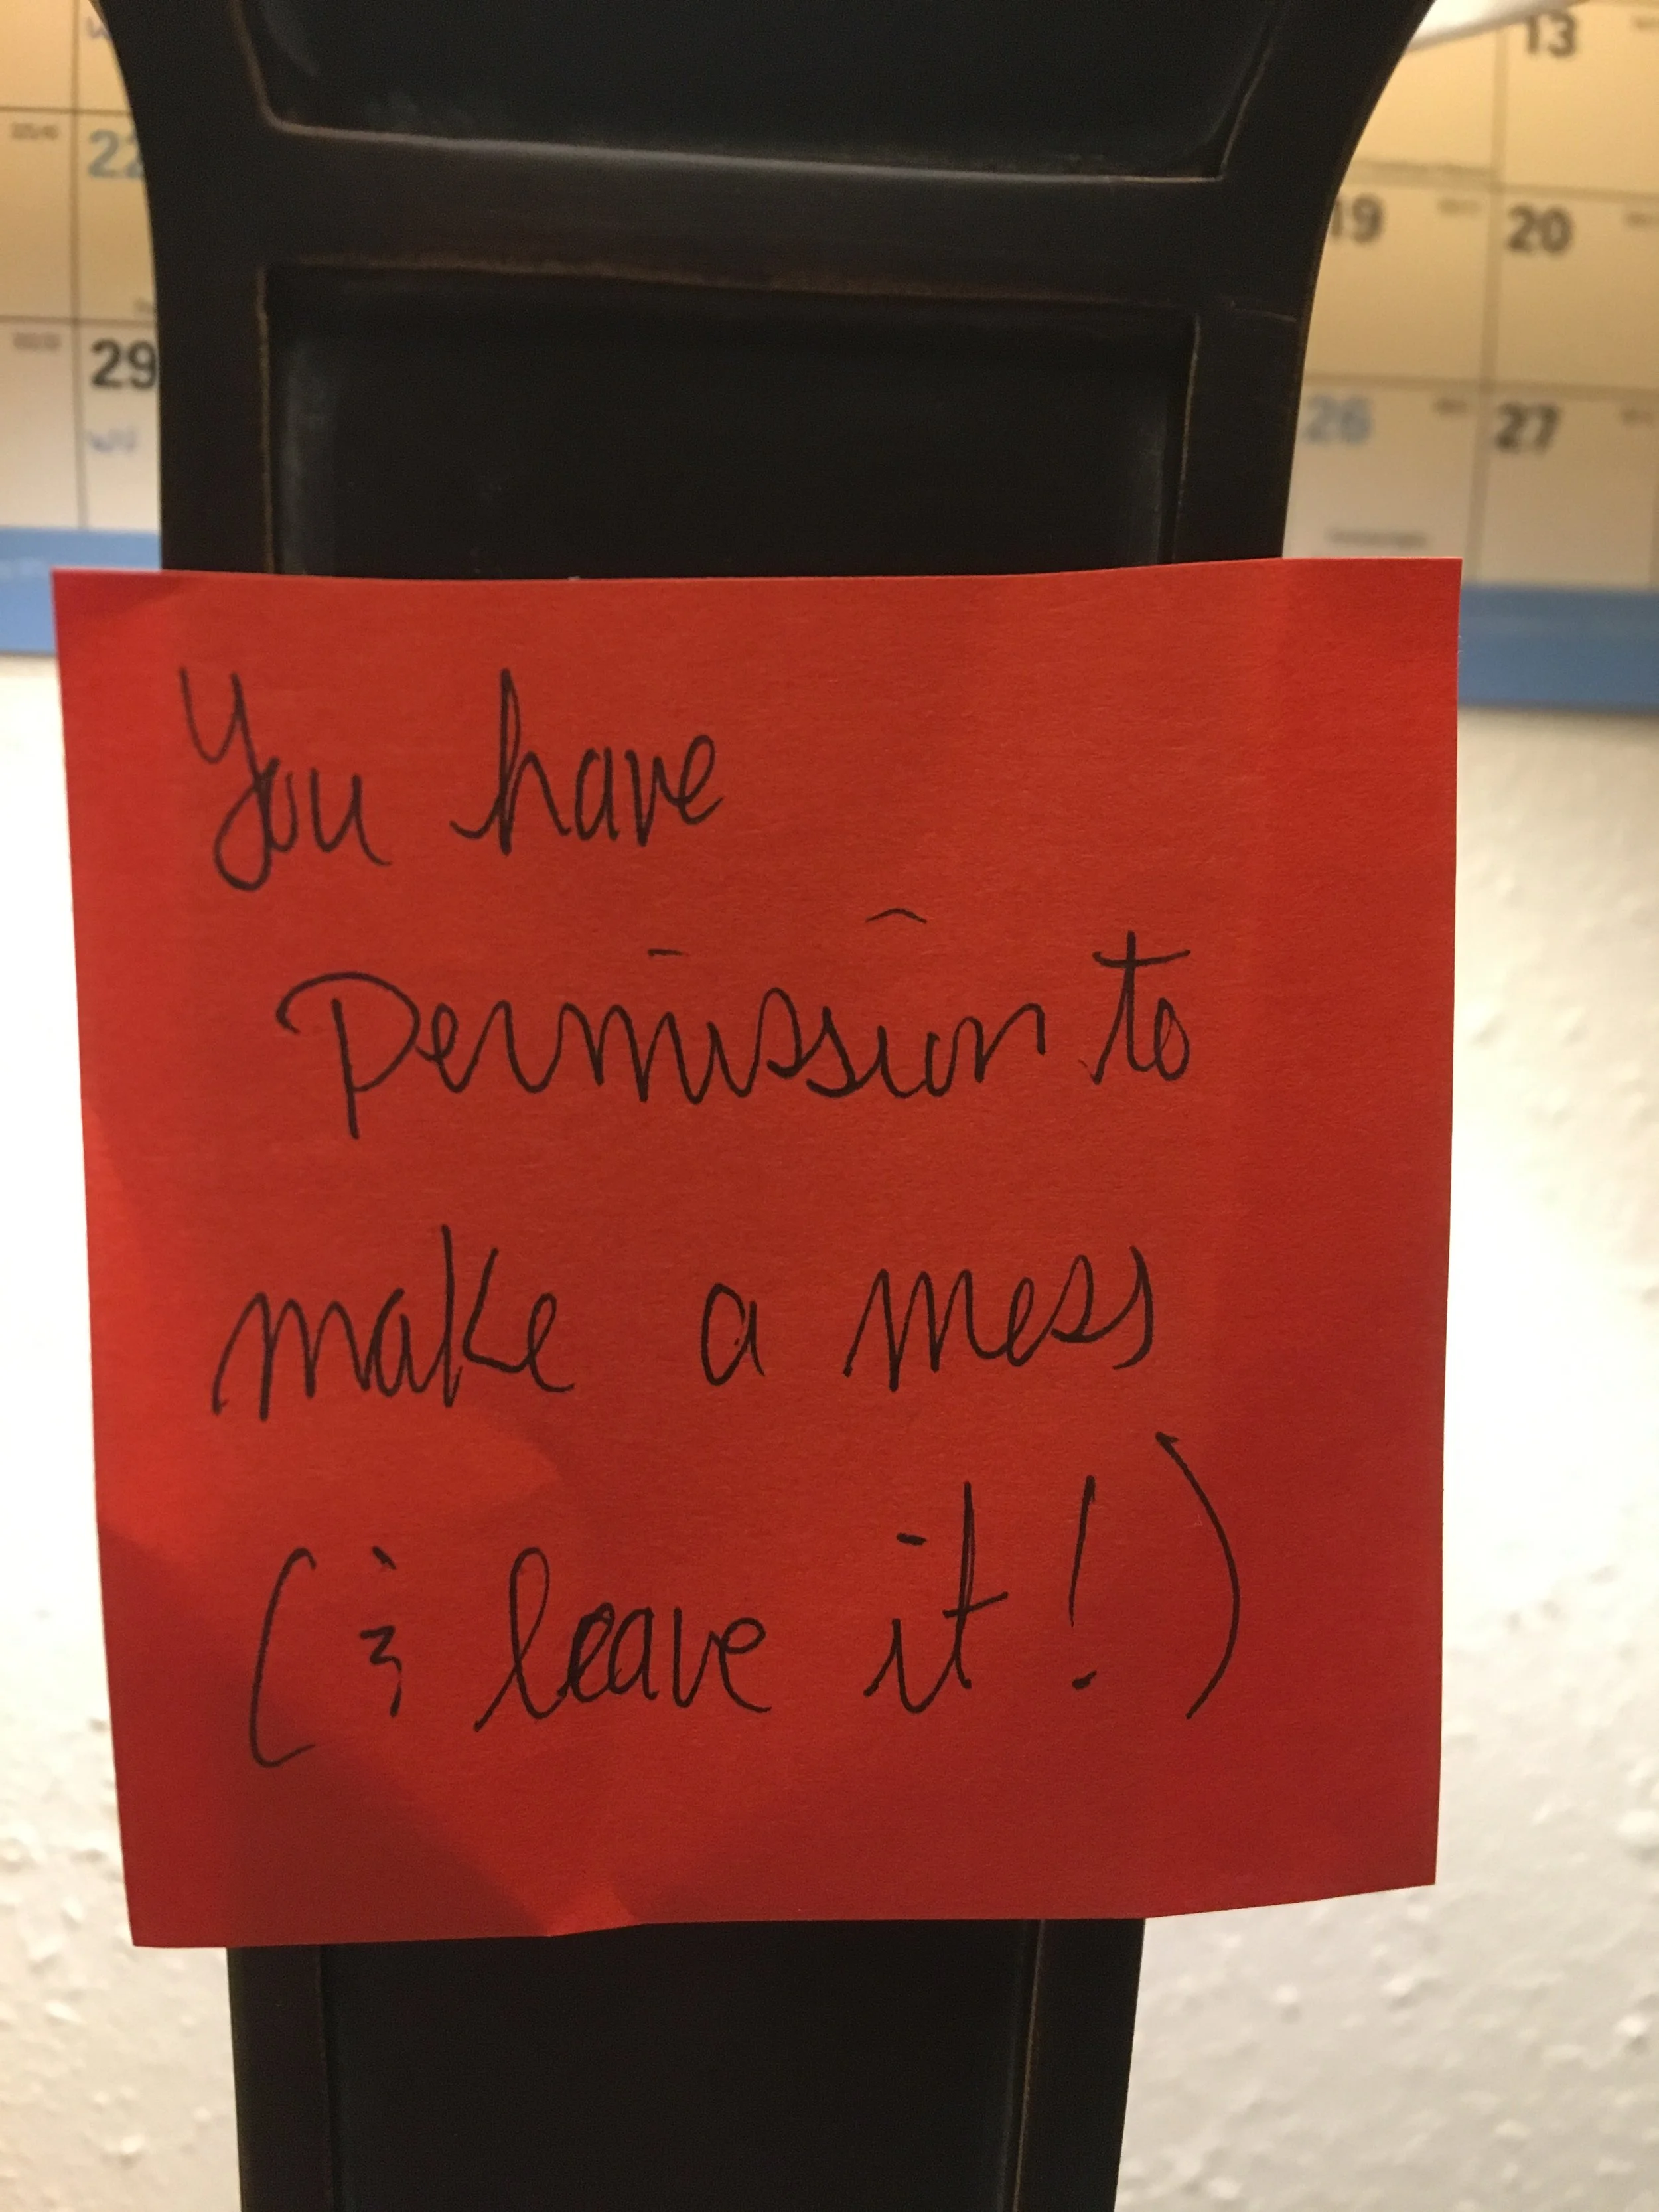 13
22
19
20
29
26
27
You have
Permission to
make a mess
(& leave it!)